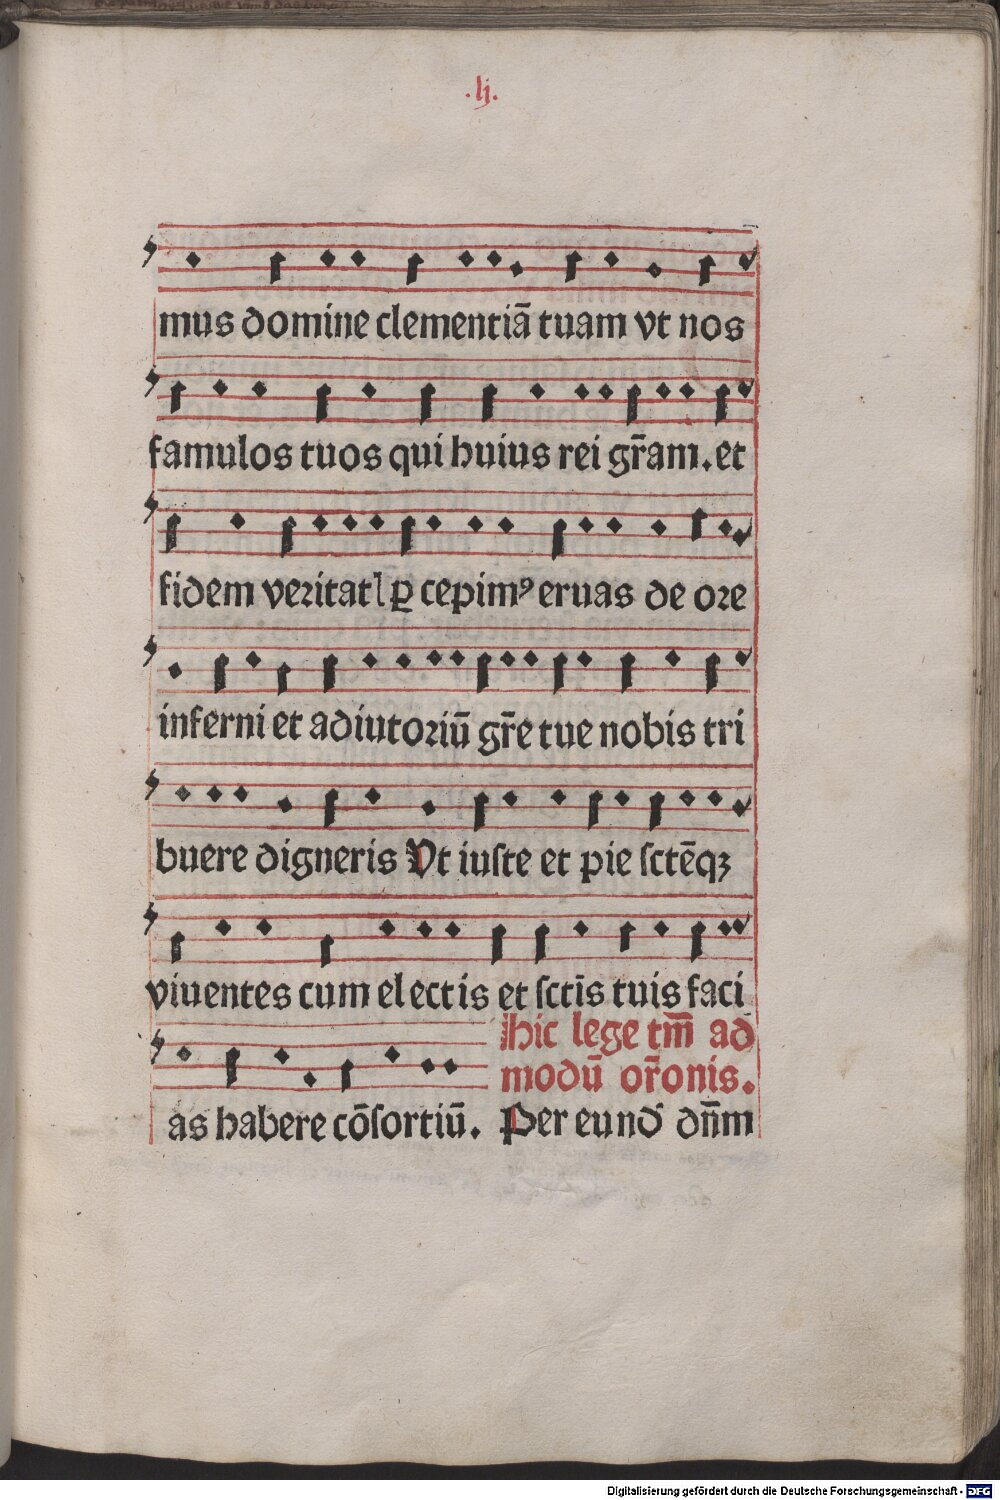 .lj.
mus domine clementiā tuam vt nos
famulos tuos qui huius rei gr̄am. et
fidem veritatꝭ ꝑ cepimꝰ eruas de ore
inferni et adiutoriū gr̄e tue nobis tri
buere digneris Vt iuste et pie sctēqꝫ
viuentes cum electis et sctīs tuis faci
hic lege tm̄ ad
modū or̄onis.
as habere cōsortiū. Per eund dn̄m
Digitalisierung gefördert durch die Deutsche Forschungsgemeinschaft - DFG